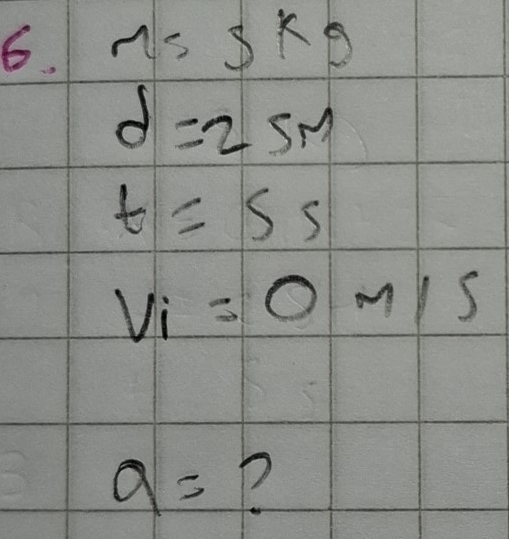 6. m= 3 kg
d = 25m
t = 5 s
Vi = 0 m/s
a = ?